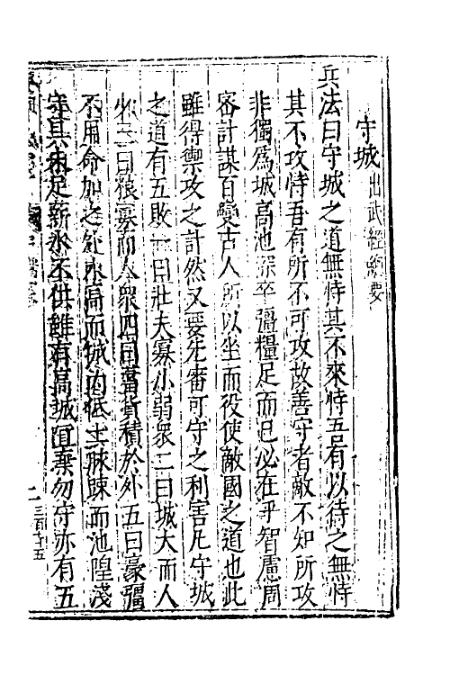 守城出武經總要
兵法曰守城之道無恃其不來恃吾有以待之無恃
其不攻恃吾有所不可攻故善守者敵不知所攻
非獨為城高池深卒彊糧足而已必在乎智慮周
審計謀百變古人所以坐而役使敵國之道也此
雖得禦攻之計然又要先審可守之利害凡守城
之道有五敗一曰壯夫寡小弱衆二曰城大而人
少三曰糧寡而人衆四曰蓄貨積於外五曰豪彊
不用命加之外水高而城內低土脉踈而池隍淺
守具未足薪水不供雖有高城宜棄勿守亦有五
三百十五